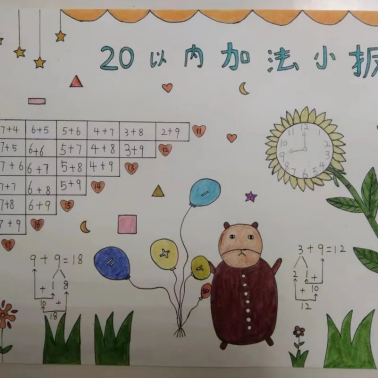 20以内加法小
7+4 6+5 5+6 4+7 3+8 2+9 11
7+5 6+6 5+7 4+8 3+9
7+6 6+7 5+8 4+9
7+7 6+8 5+9 14
7+8 6+9
+9
9+9=18
1 8
+
10
+
18
3+9=12
2 1
+
10
+
12